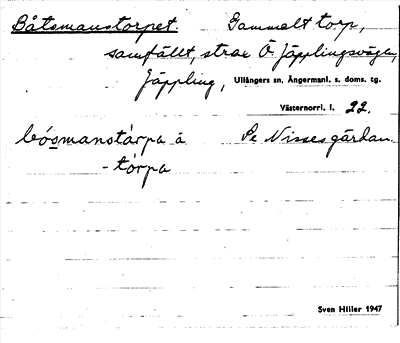 Båtsmanstorpet. Gammalt torp,
samfällt, strax Ö Jäpplingsvägen,
Jäppling, Ullångers sn, Ångermanl. s. doms. tg.
Västernorrl. l. 22.
bósmanstårpa å Pe Nissesgårdan.
- tårpa
Sven Hiller 1947